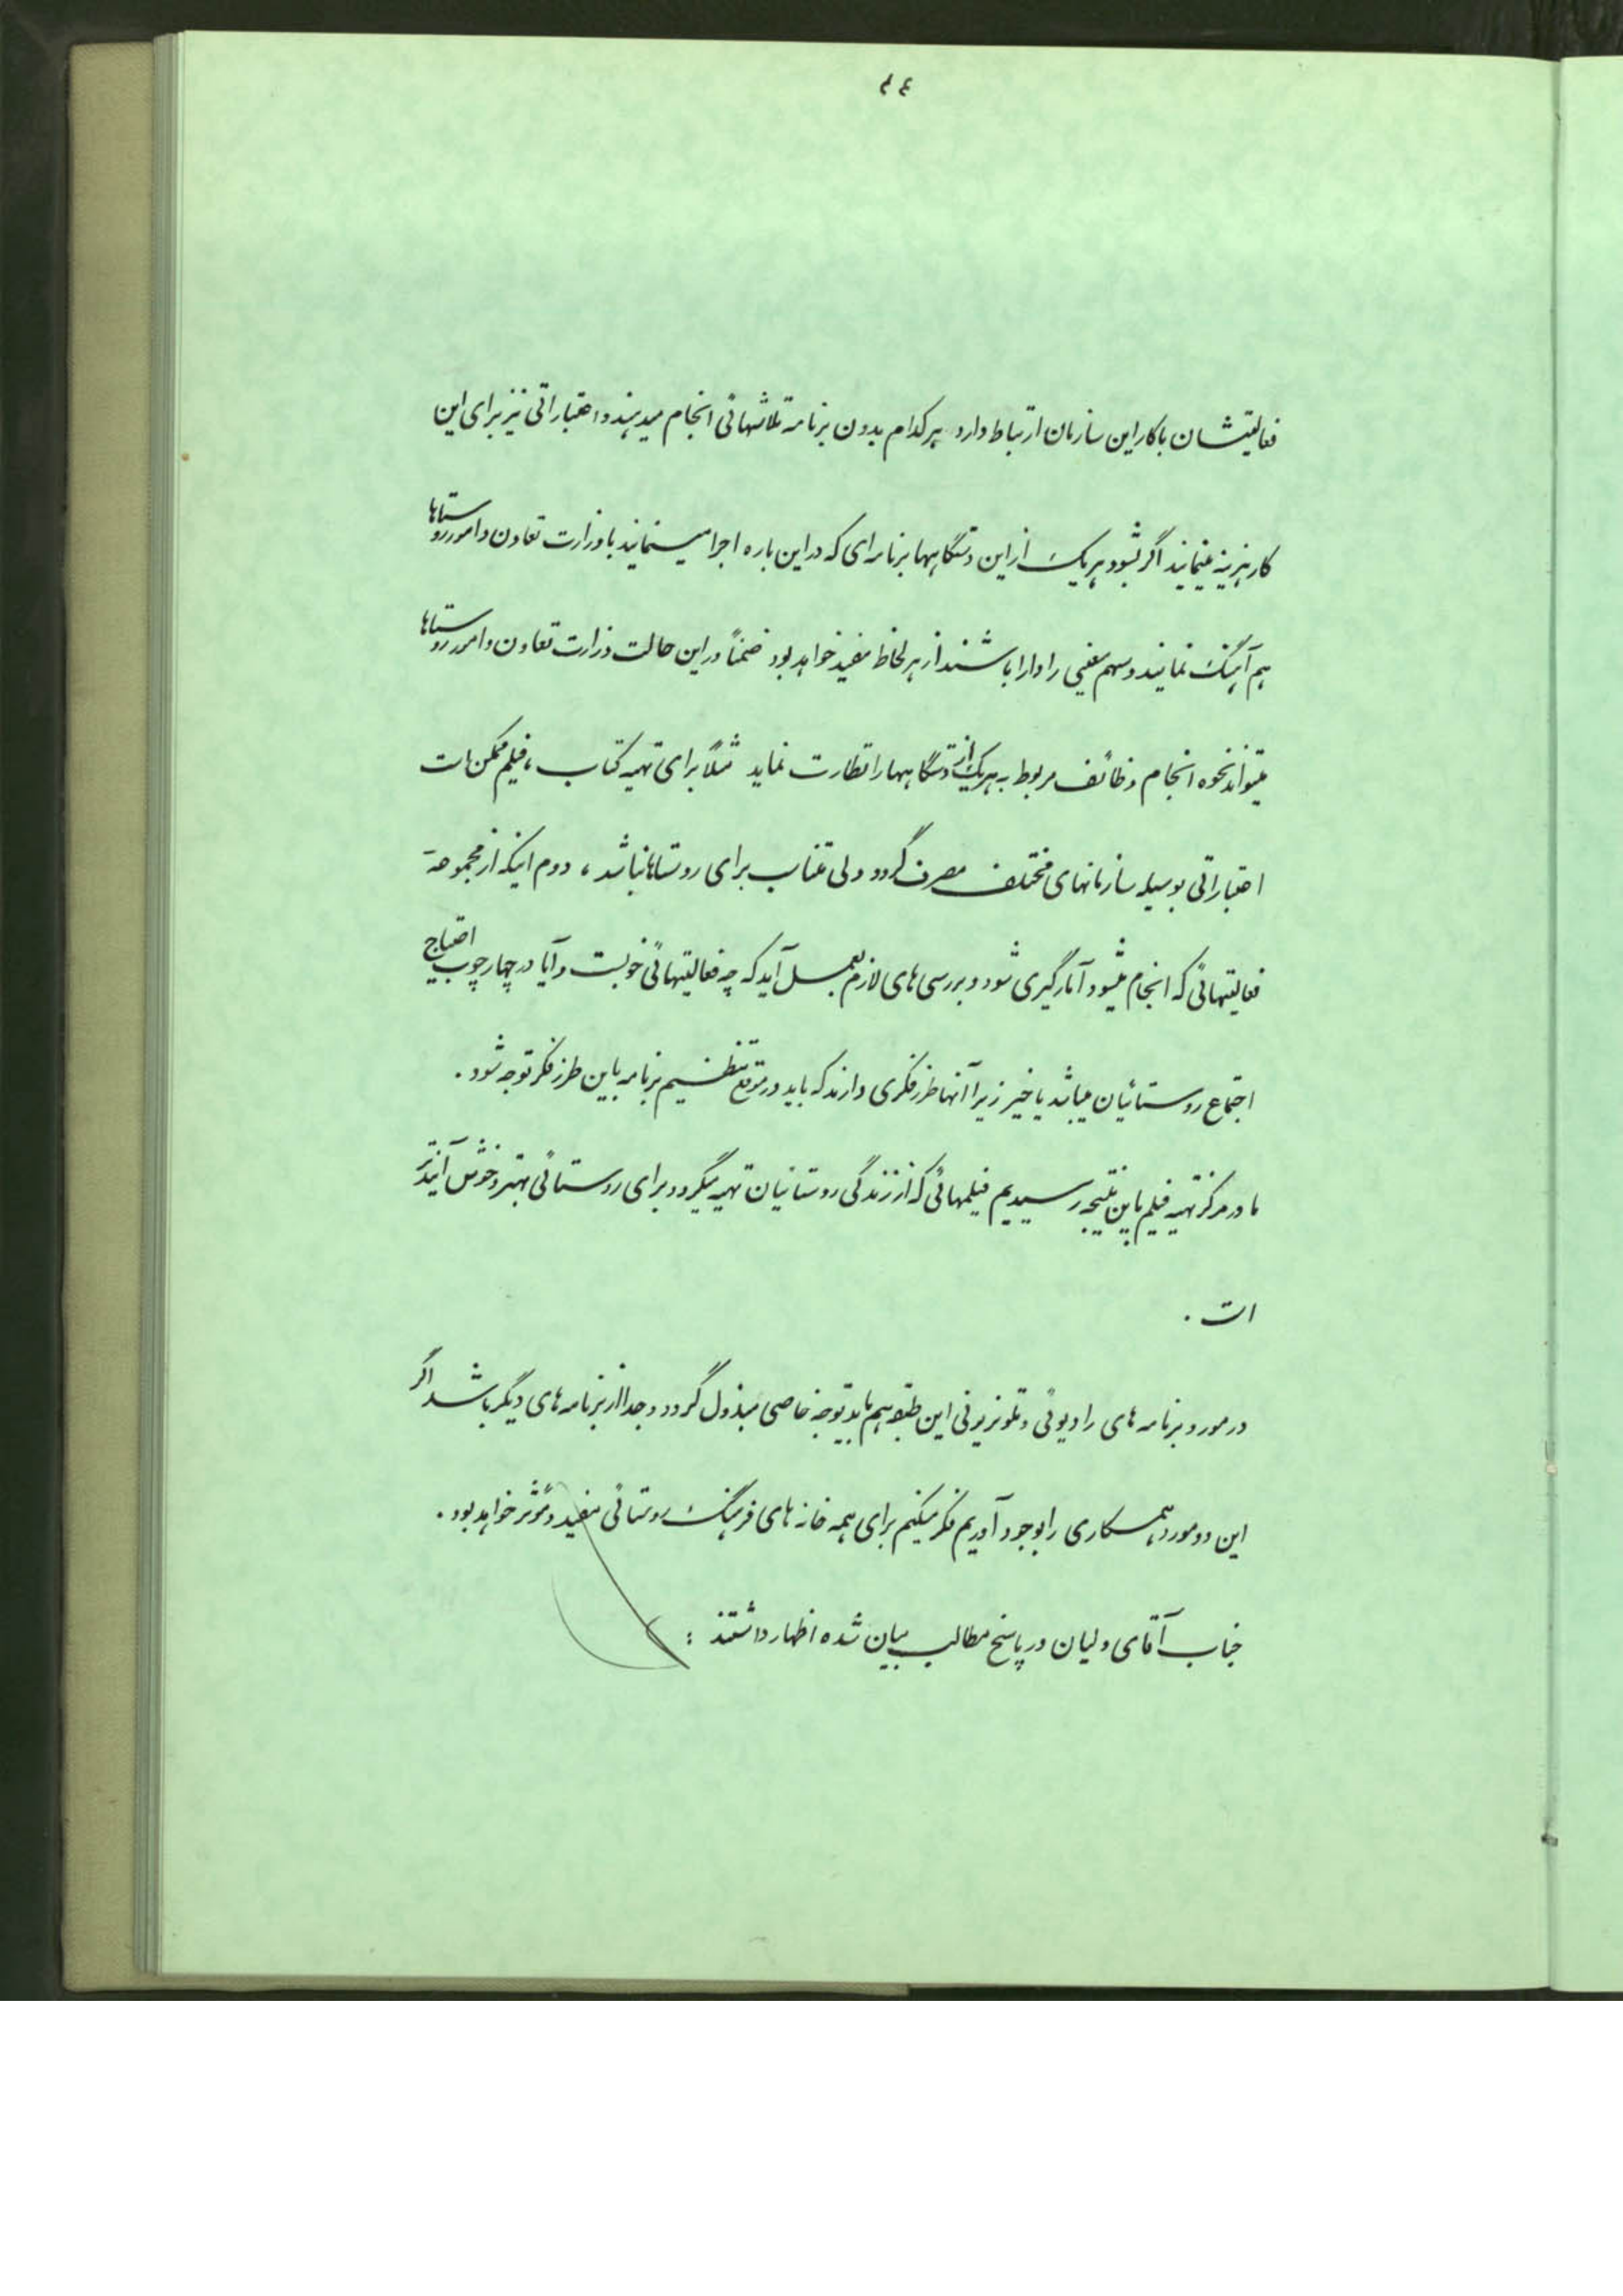 ٤٩
فعالیتشان با کار این سازمان ارتباط دارد هر کدام بدون برنامه تلاشهائی انجام میدهند و اعتباراتی نیز برای این
کار هزینه مینمایند اگر بشود هر یک از این دستگاهها برنامه‌ای که در این باره اجرا مینمایند با وزارت تعاون و امور روستاها
هم آهنگ نمایند و سهم معینی را دارا باشند از هر لحاظ مفید خواهد بود ضمناً در این حالت وزارت تعاون و امور روستاها
میتواند نحوه انجام وظائف مربوط به هر یک از دستگاهها را نظارت نماید مثلاً برای تهیه کتاب ، فیلم ممکن است
اعتباراتی بوسیله سازمانهای مختلف مصرف گردد ولی متناسب برای روستاها نباشد ، دوم اینکه از مجموعه
فعالیتهائی که انجام میشود آمارگیری شود و بررسی های لازم بعمل آید که چه فعالیتهائی خوبست و آیا در چهارچوب احتیاج
اجتماع روستائیان میباشد یا خیر زیرا آنها طرز فکری دارند که باید در موقع تنظیم برنامه باین طرز فکر توجه شود .
ما در مرکز تهیه فیلم باین نتیجه رسیدیم فیلمهائی که از زندگی روستائیان تهیه میگردد برای روستائی بهتر و خوش آیندتر
است .
در مورد برنامه های رادیوئی و تلویزیونی این طبقه هم باید توجه خاصی مبذول گردد و جدا از برنامه های دیگر باشد اگر
این دو مورد همکاری را بوجود آوریم فکر میکنم برای همه خانه های فرهنگ روستائی مفید و مؤثر خواهد بود .
جناب آقای ولیان در پاسخ مطالب بیان شده اظهار داشتند :